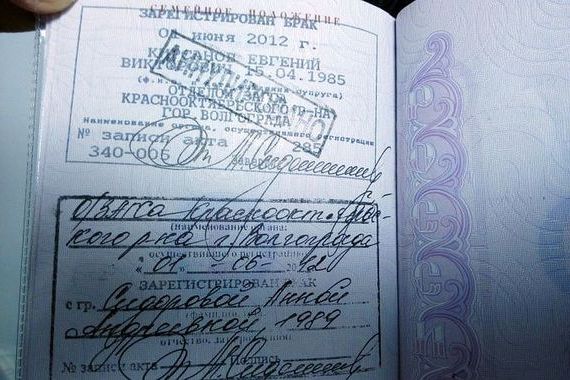 СЕМЕЙНОЕ ПОЛОЖЕНИЕ
ЗАРЕГИСТРИРОВАН БРАК
июня 2012 г.
ЕВГЕНИЙ
15.04.1985
ОТДЕЛОМ
КРАСНООКТЯБРЬСКОГО Р-НА
ГОР. ВОЛГОГРАДА
Наименование органа, осуществившего регистрацию
№ записи акта 285
340-006 Заверил
О/ЗАГСа Краснооктябрьс-
кого р-на г. Волгограда
(наименование органа,
осуществившего регистрацию)
« 01 » 06 12
ЗАРЕГИСТРИРОВАН БРАК
с гр. Сидоровой Анной
Андреевной, 1989
отчество, дата рождения)
№ записи акта Подпись